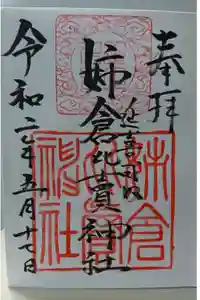 奉拝
延喜
姉倉比賣神社
令和二年五月十七日
姉倉
比賣
神社